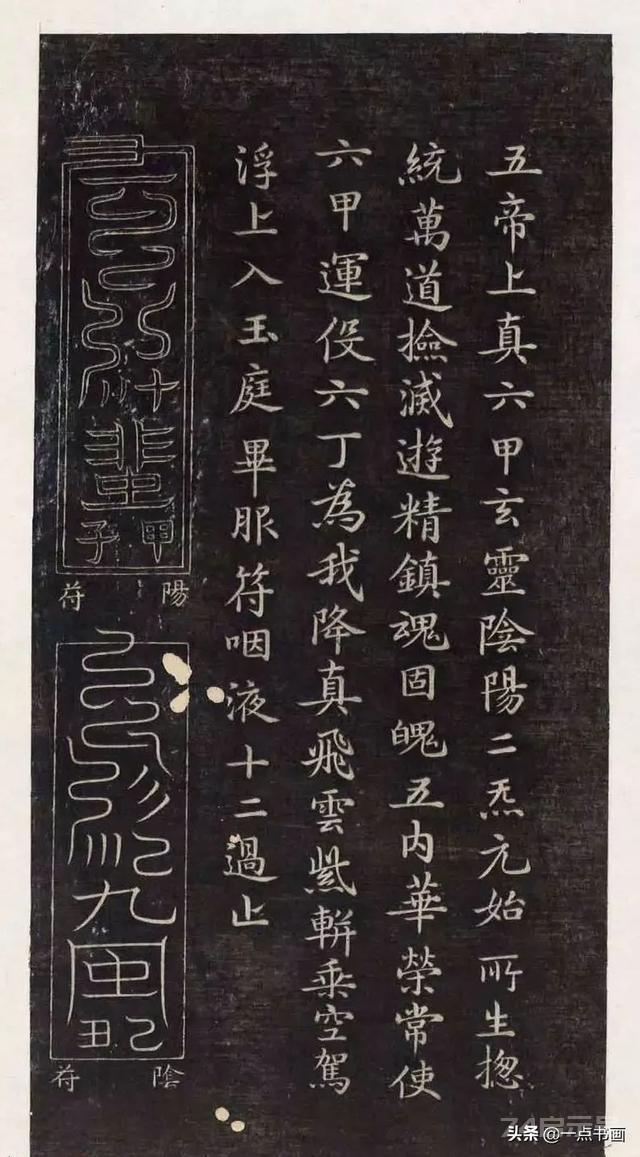 五帝上真六甲玄靈陰陽二炁元始所生揔
統萬道撿滅遊精鎮魂固魄五内華榮常使
六甲運役六丁為我降真飛雲紫輧乗空駕
浮上入玉庭畢服符咽液十二過止
甲子
陽符
己丑
陰符
头条 @一点书画